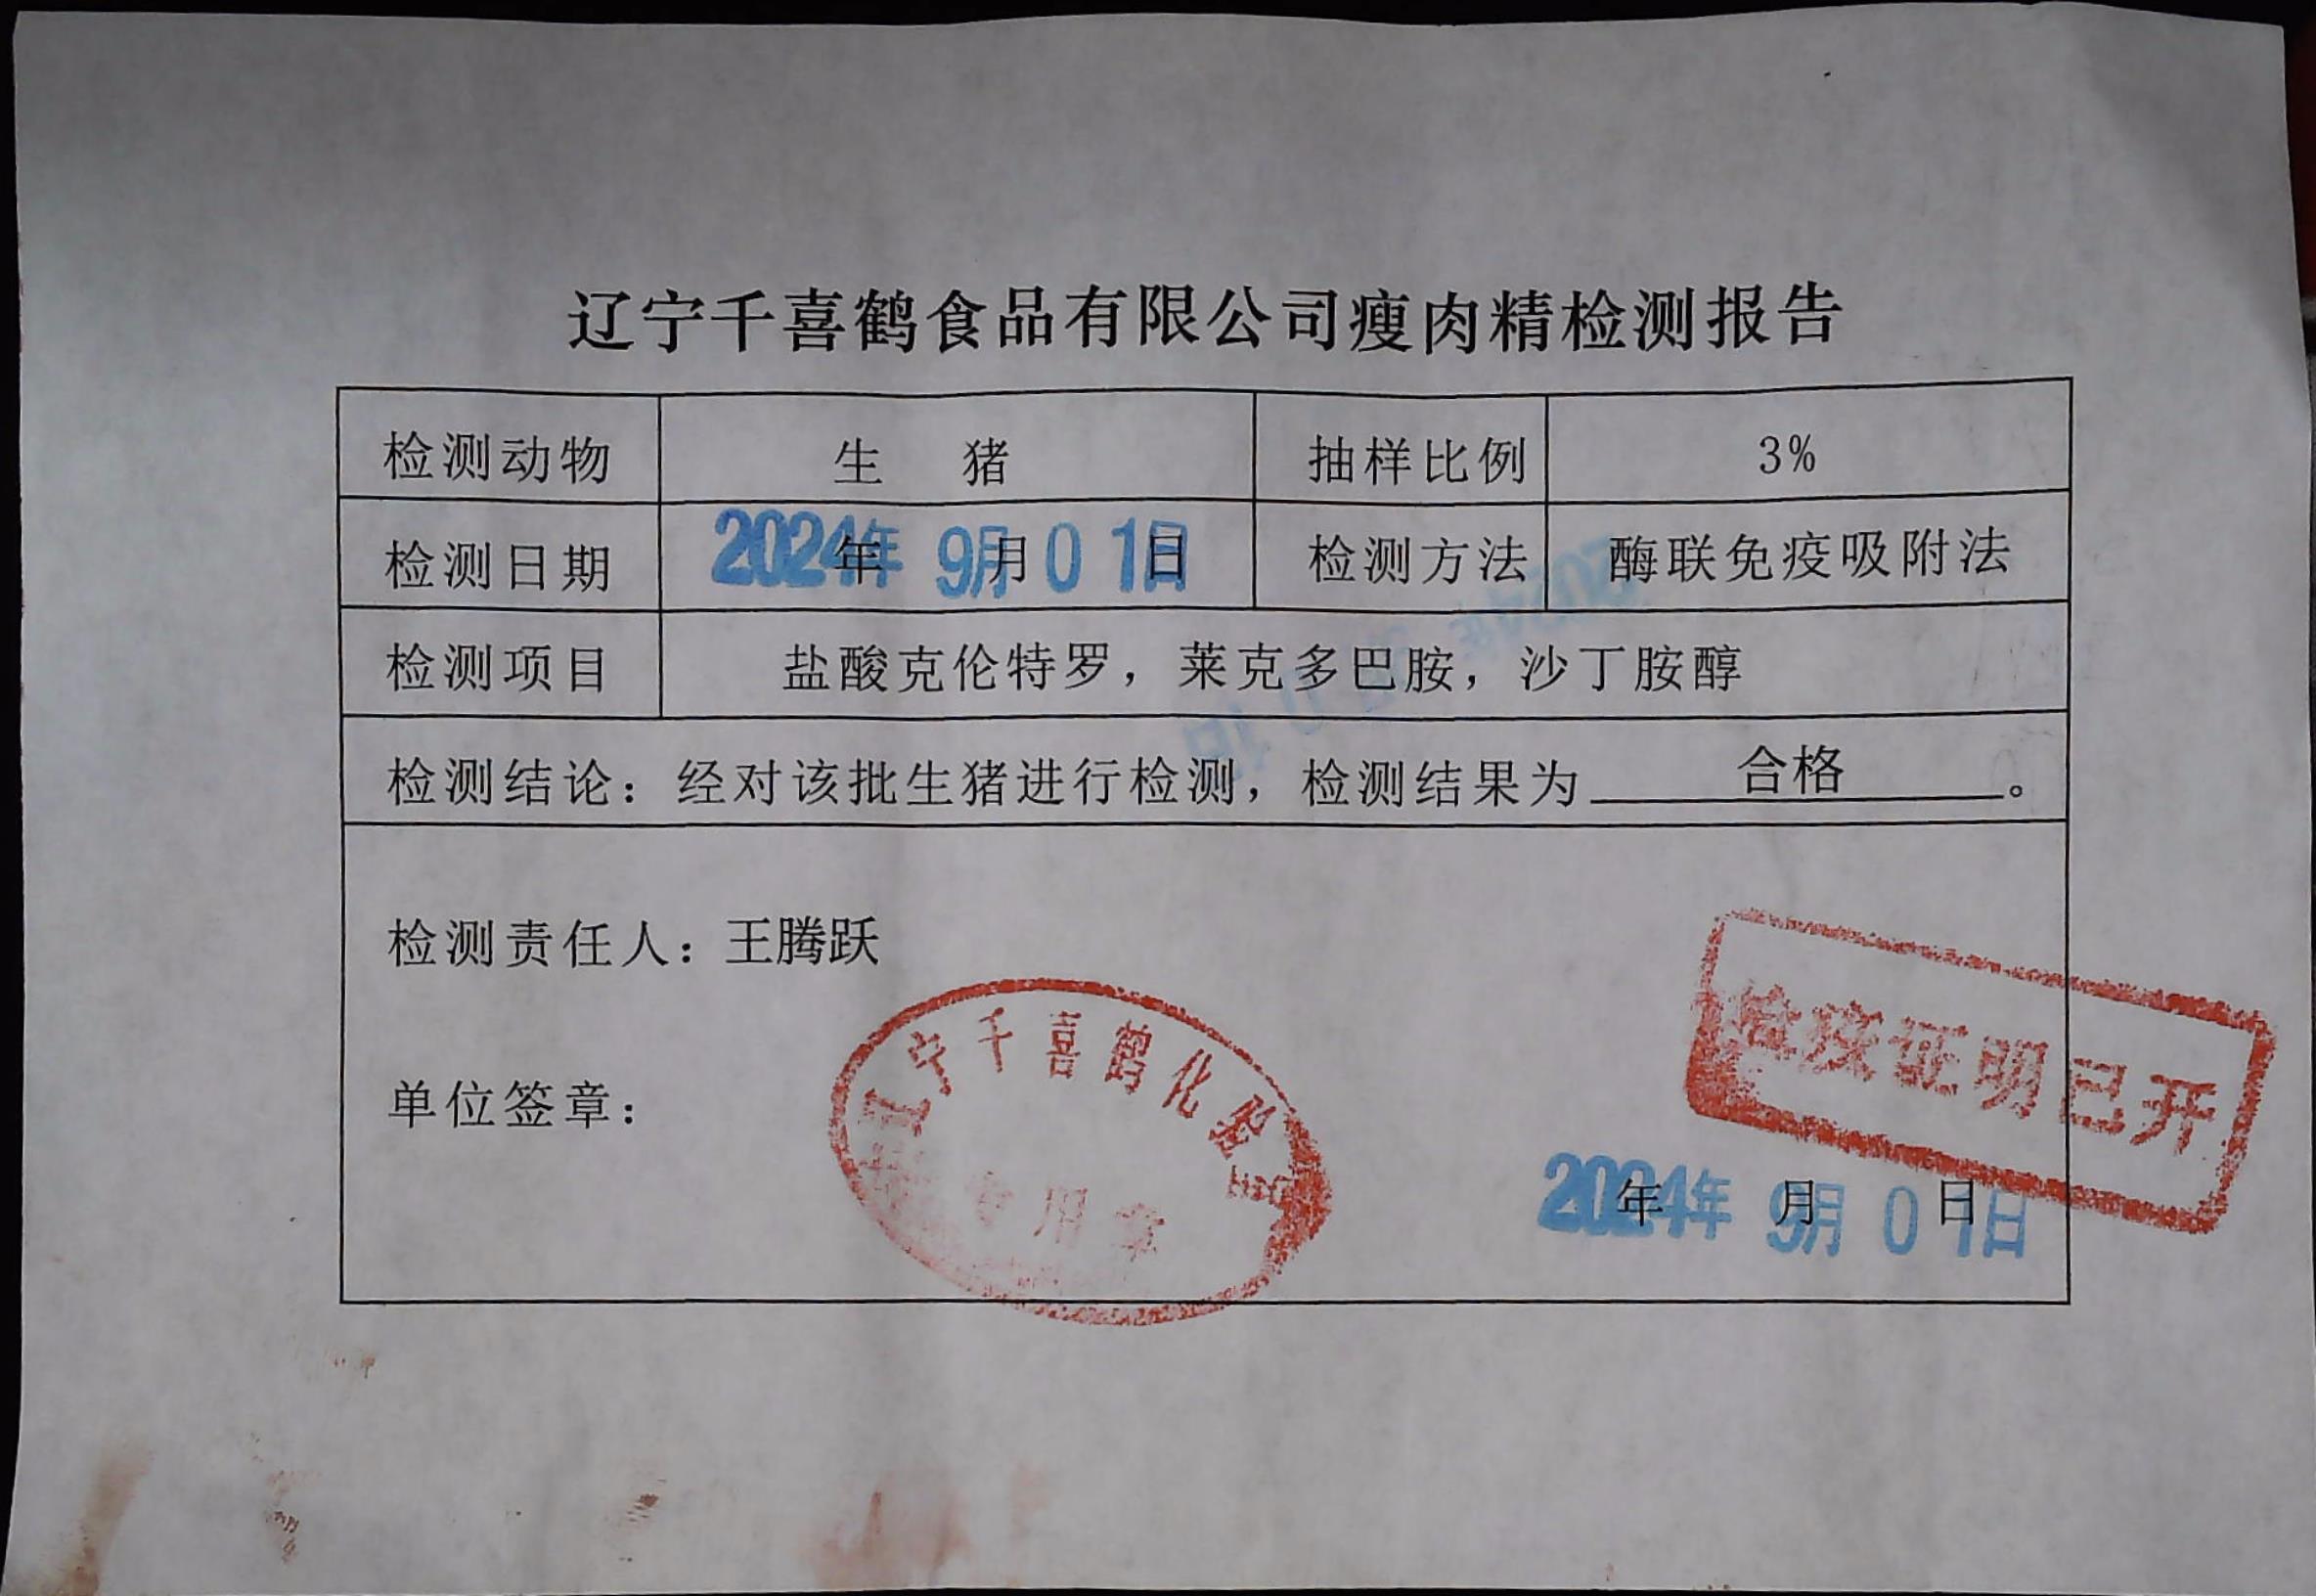 辽宁千喜鹤食品有限公司瘦肉精检测报告
检测动物 生 猪 抽样比例 3%
检测日期 2024年 9月 01日 检测方法 酶联免疫吸附法
检测项目 盐酸克伦特罗，莱克多巴胺，沙丁胺醇
检测结论：经对该批生猪进行检测，检测结果为 合格 。
检测责任人：王腾跃
单位签章：
辽宁千喜鹤化验室
专用章
检疫证明已开
2024年 9月 01日
年 月 日